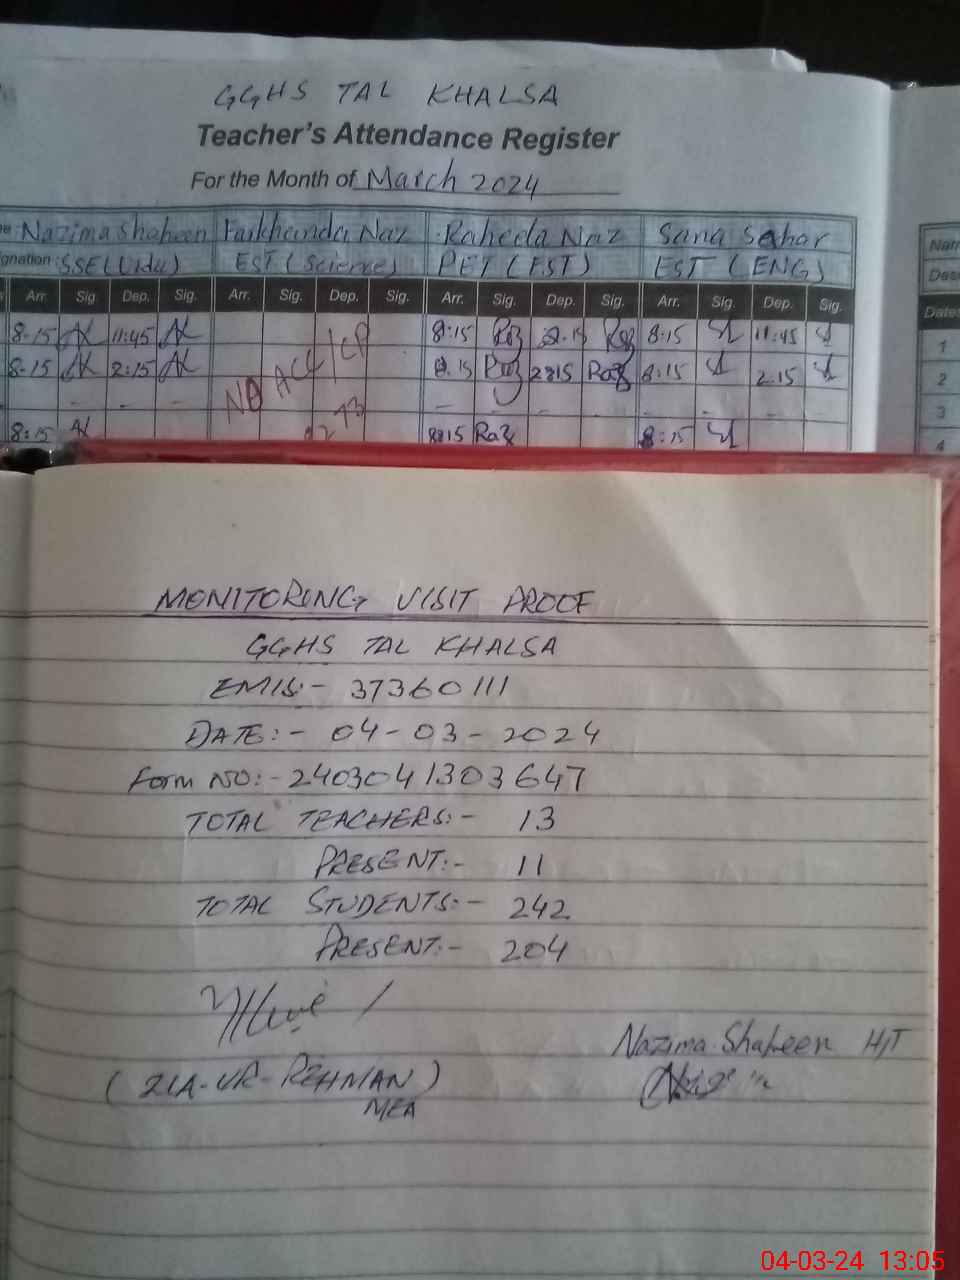 GGHS TAL KHALSA
Teacher's Attendance Register
For the Month of March 2024
Nazima Shaheen Farkhanda Naz Raheela Naz Sana Sahar
ignation: SSE(Urdu) EST (Science) PET (EST) EST (ENG)
Arr. Sig Dep. Sig. Arr. Sig. Dep. Sig. Arr. Sig. Dep. Sig. Arr. Sig. Dep. Sig. Dates
8-15 11:45 8:15 2.15 8:15 11:45 1
8-15 2:15 NO ACC/CP 8.15 2815 8:15 2.15 2
- - - - - - - - 3
8:15 8815 8:15 4
MONITORING VISIT PROOF
GGHS TAL KHALSA
EMIS:- 37360111
DATE:- 04-03-2024
Form NO:- 2403041303647
TOTAL TEACHERS:- 13
PRESENT:- 11
TOTAL STUDENTS:- 242
PRESENT:- 204
Nazima Shaheen H/T
(ZIA-UR-REHMAN)
MEA
04-03-24 13:05